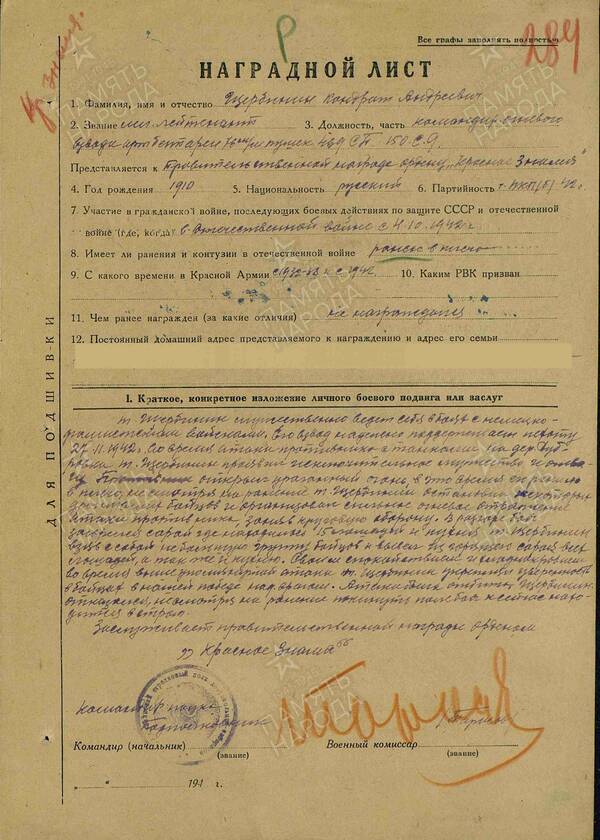 Кр. знамя.
Р
Все графы заполнять полностью
289
НАГРАДНОЙ ЛИСТ
1. Фамилия, имя и отчество Щербинин Кондрат Андреевич
2. Звание мл. лейтенант 3. Должность, часть командир огневого
взвода артбатареи 469 СП 150 С.Д.
Представляется к Правительственной награде ордену „Красное Знамя“
4. Год рождения 1910 5. Национальность русский 6. Партийность ВКП(б) 42 г.
7. Участие в гражданской войне, последующих боевых действиях по защите СССР и отечественной
войне (где, когда) в Отечественной войне с 1942 г.
8. Имеет ли ранения и контузии в отечественной войне ранен в плечо
9. С какого времени в Красной Армии с 1942 10. Каким РВК призван
11. Чем ранее награжден (за какие отличия) не награждался
12. Постоянный домашний адрес представляемого к награждению и адрес его семьи
ДЛЯ ПОДШИВКИ
I. Краткое, конкретное изложение личного боевого подвига или заслуг
т. Щербинин мужественно ведет себя в боях с немецко-
фашистскими войсками. Его взвод надежно поддерживает пехоту
27.11.1942 г. Во время атаки противника с танками на дер. Дуб-
ровка т. Щербинин проявил исключительное мужество и отва-
гу. открыл ураганный огонь, в это время
в плечо, несмотря на ранение т. Щербинин остановил
бойцов и организовал сильное огневое отражение
атаки противника, занял круговую оборону. В разгаре боя
загорелся сарай где находилось 15 лошадей и т. Щербинин
взяв с собой небольшую группу бойцов и вывел из горящего сарая всех
лошадей, а так же и Своим спокойствием и
во время вышеупомянутой атаки т. Щербинин уверенность
в бойцах в нашей победе над врагом. атака отбита, Щербинин
отказался, несмотря на ранение покинуть поле боя и сейчас нахо-
дится в строю.
Заслуживает правительственной награды орденом
„Красное Знамя“
Командир полка
Командир (начальник)
(звание)
Военный комиссар
(звание)
194 г.
ПАМЯТЬ НАРОДА